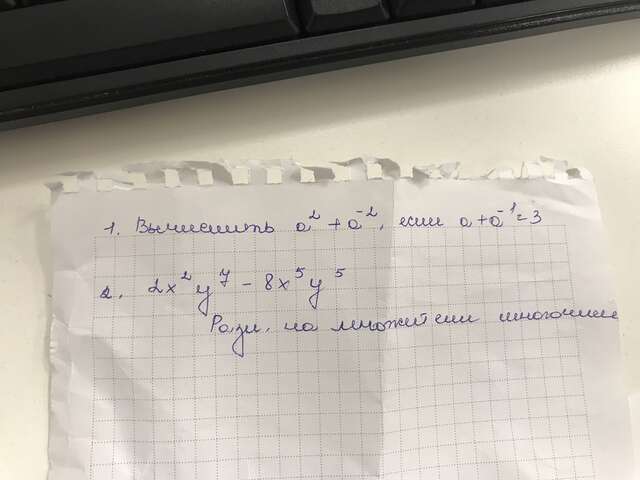 1. Вычислить a² + a⁻², если a + a⁻¹ = 3
2. 2x²y⁷ - 8x⁵y⁵
Разл. на множители многочлен